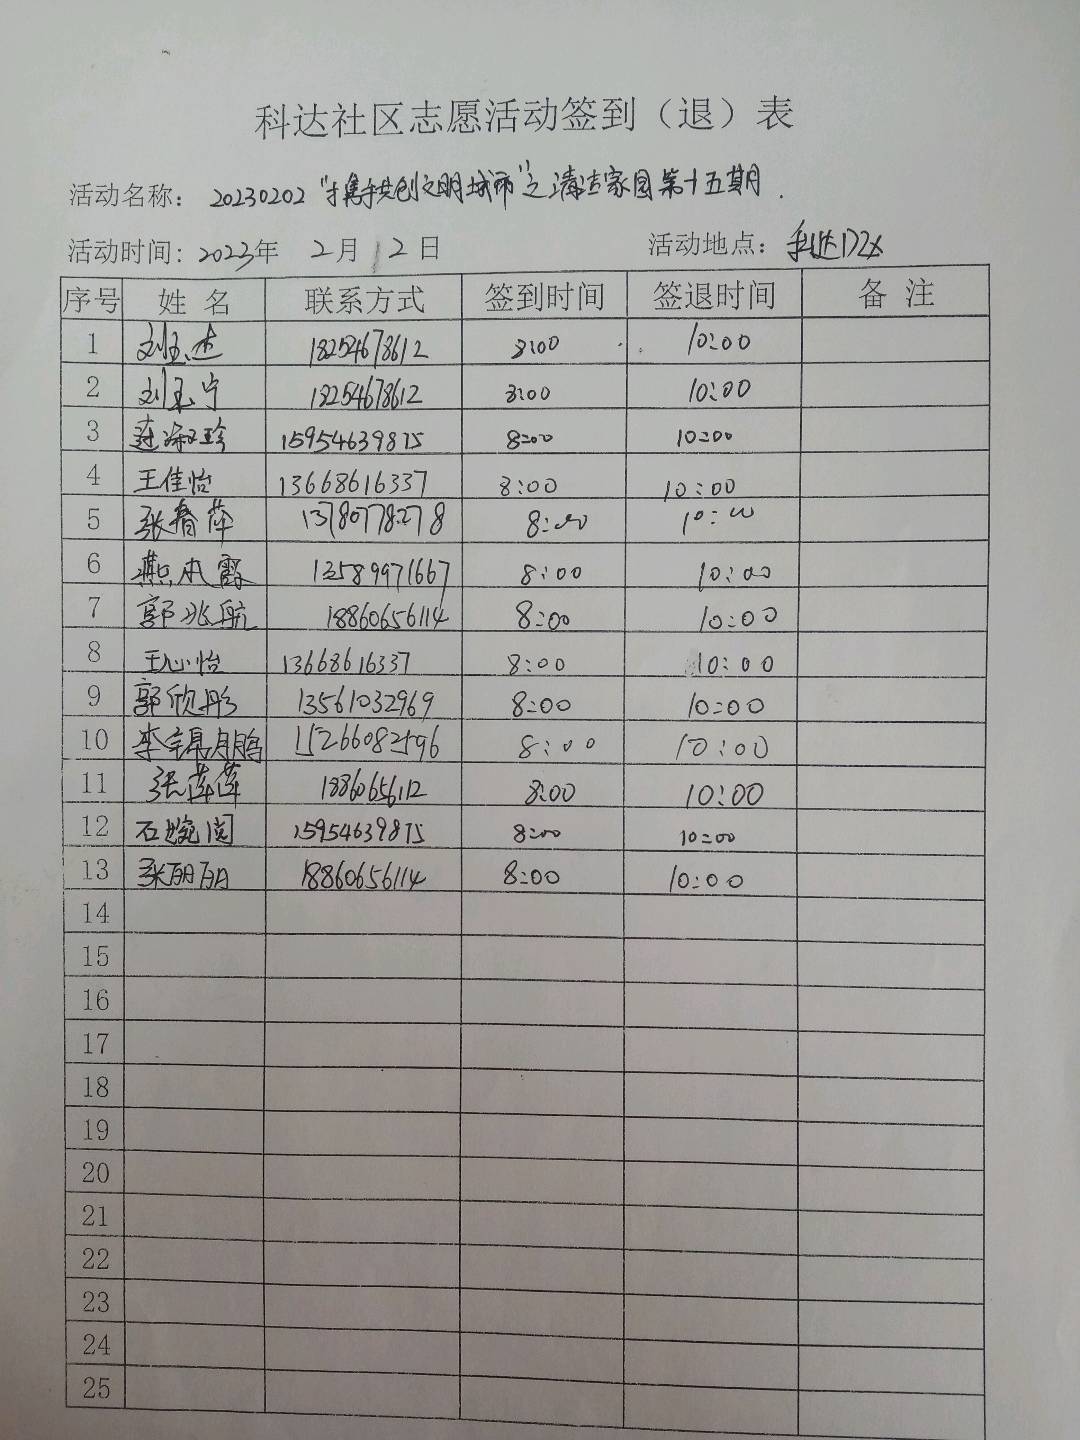 科达社区志愿活动签到（退）表
活动名称： 20230202 "携手共创文明城市"之清洁家园第十五期.
活动时间：2023年 2月12日 活动地点：科达D2x
序号 姓名 联系方式 签到时间 签退时间 备注
1 刘玉杰 18254678612 8:00 10:00
2 刘玉宁 18254678612 8:00 10:00
3 15954639875 8:00 10:00
4 王佳怡 13668616337 8:00 10:00
5 张春萍 13780778278 8:00 10:00
6 燕本霞 13589971667 8:00 10:00
7 郭兆航 18860656114 8:00 10:00
8 王心怡 13668616337 8:00 10:00
9 郭欣彤 13561032969 8:00 10:00
10 李锦鹏 15266082596 8:00 10:00
11 张萍萍 18860656112 8:00 10:00
12 石婉闵 15954639875 8:00 10:00
13 张丽丽 18860656114 8:00 10:00
14
15
16
17
18
19
20
21
22
23
24
25